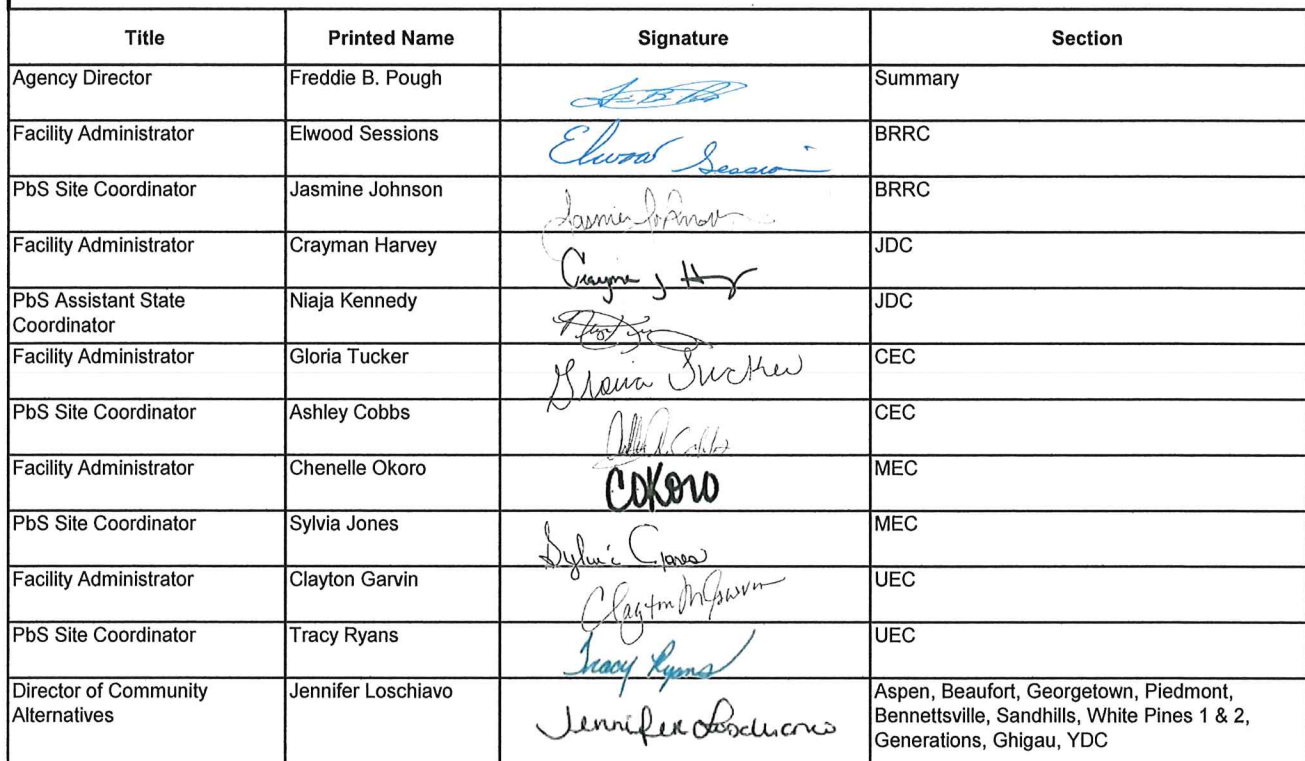 Title Printed Name Signature Section
Agency Director Freddie B. Pough Summary
Facility Administrator Elwood Sessions Elwood Session BRRC
PbS Site Coordinator Jasmine Johnson BRRC
Facility Administrator Crayman Harvey JDC
PbS Assistant State Niaja Kennedy JDC
Coordinator
Facility Administrator Gloria Tucker Gloria Tucker CEC
PbS Site Coordinator Ashley Cobbs CEC
Facility Administrator Chenelle Okoro COKORO MEC
PbS Site Coordinator Sylvia Jones Sylvia Jones MEC
Facility Administrator Clayton Garvin Clayton M Garvin UEC
PbS Site Coordinator Tracy Ryans Tracy Ryans UEC
Director of Community Jennifer Loschiavo Jennifer Loschiavo Aspen, Beaufort, Georgetown, Piedmont,
Alternatives Bennettsville, Sandhills, White Pines 1 & 2,
Generations, Ghigau, YDC